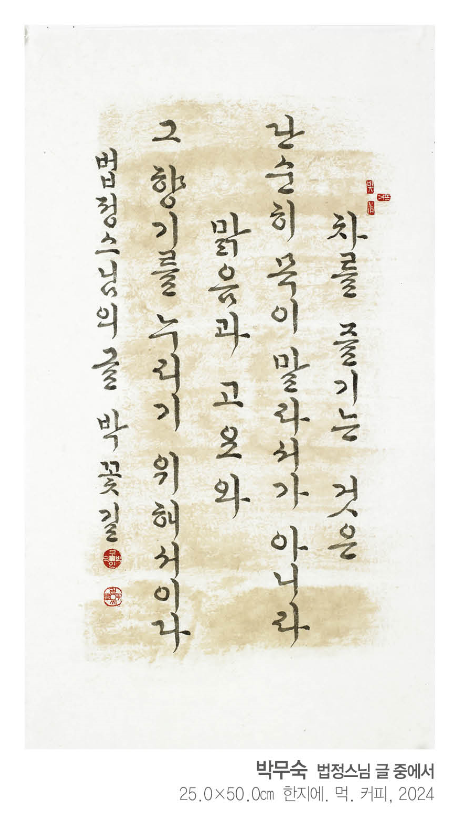 차를 즐기는 것은
단순히 목이 말라서가 아니라
맑음과 고요와
그 향기를 누리기 위해서이다
법정스님의 글 박꽃길
박무숙 법정스님 글 중에서
25.0×50.0㎝ 한지에, 먹, 커피, 2024